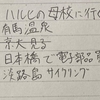 ハルヒの母校に行く
有馬温泉
京大見る
日本橋で電子部品
淡路島 サイクリング